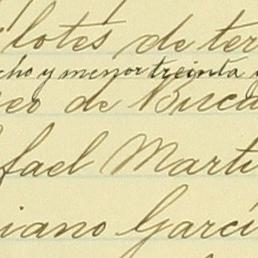 lotes de ter
cho y menor treinta y
eo de Buca
fael Marti
iano Garcí